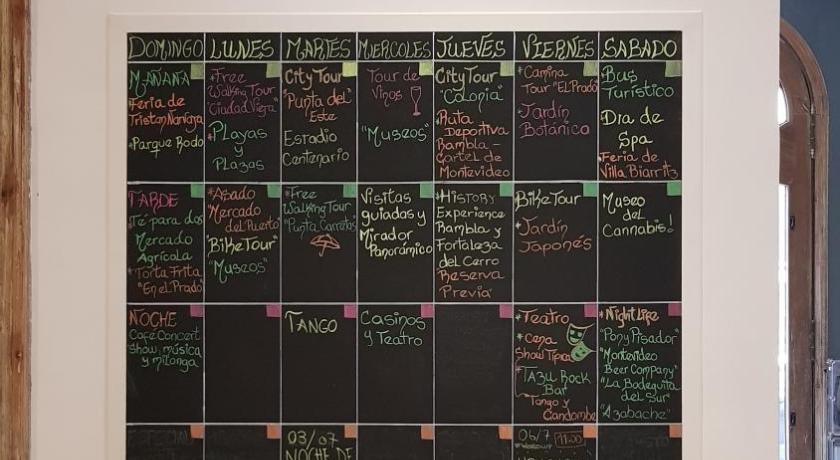 DOMINGO LUNES MARTES MIERCOLES JUEVES VIERNES SABADO
MAÑANA
Feria de
Tristan Narvaja
*Parque Rodo
*Free
Walking Tour
"Ciudad Vieja"
*Playas
y
Plazas
City Tour
"Punta del
Este
Estadio
Centenario
Tour de
Vinos
"Museos"
City Tour
"Colonia"
*Ruta
Deportiva
Rambla -
Cartel de
Montevideo
*Camina
Tour "El Prado"
Jardín
Botánico
Bus
Turístico
Dia de
Spa
*Feria de
Villa Biarritz
TARDE
Té para dos
Mercado
Agrícola
*Torta Frita
"En el Prado"
*Asado
Mercado
del Puerto
"Bike Tour"
"Museos"
*Free
Walking Tour
"Punta Carretas"
Visitas
guiadas y
Mirador
Panorámico
*History
Experience
Rambla y
Fortaleza
del Cerro
Reserva
Previa
Bike Tour
*Jardín
Japonés
Museo
del
Cannabis!
NOCHE
Café Concert
Show, música
y milonga
TANGO
Casinos
y Teatro
*Teatro
*Cena
Show Típica
*Tazu Rock
Bar
Tango y
Candombe
*Night Life
"Pony Pisador"
"Montevideo
Beer Company"
"La Bodeguita
del Sur"
"Azabache"
03/07
NOCHE DE
06/7